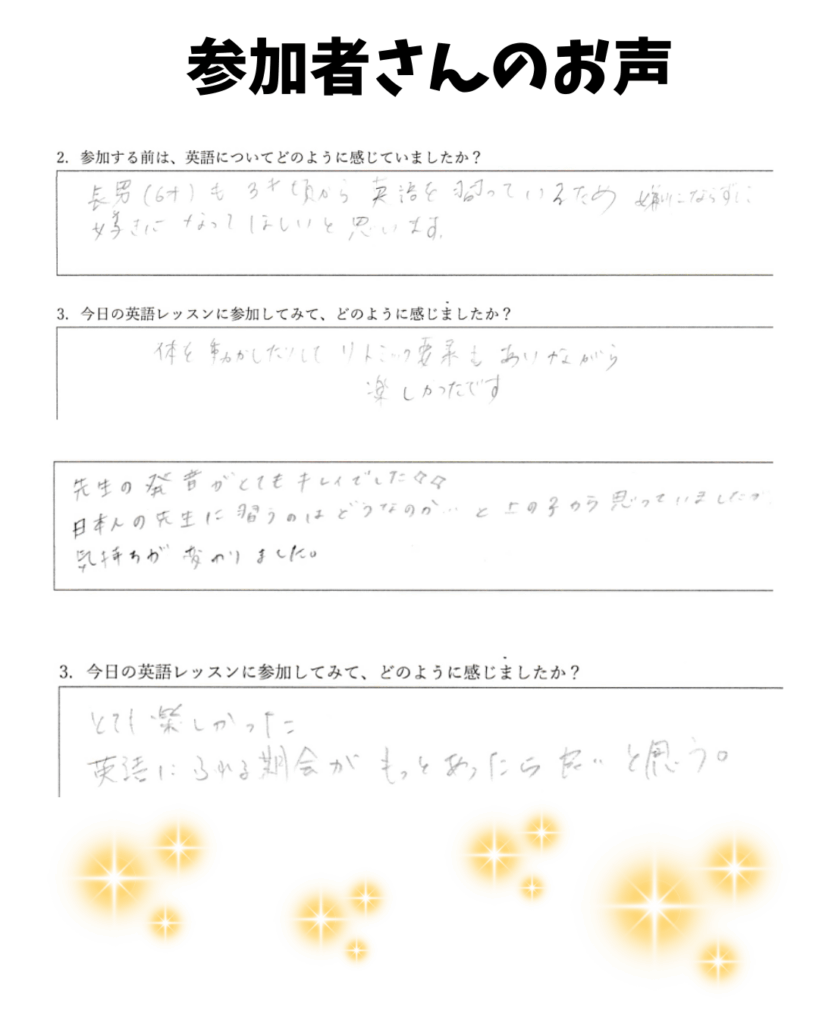 参加者さんのお声
2. 参加する前は、英語についてどのように感じていましたか？
長男(6才)も3才頃から 英語を 習っているため 嫌にならずに
好きに なって ほしいと 思います。
3. 今日の英語レッスンに参加してみて、どのように感じましたか？
体を動かしたりして リトミック要素も ありながら
楽しかったです
先生の発音がとてもキレイでした
日本人の先生に習うのはどうなのか… と上の子から思っていましたが
気持ちが変わりました。
3. 今日の英語レッスンに参加してみて、どのように感じましたか？
とても楽しかった
英語にふれる期会がもっとあったら良いと思う。